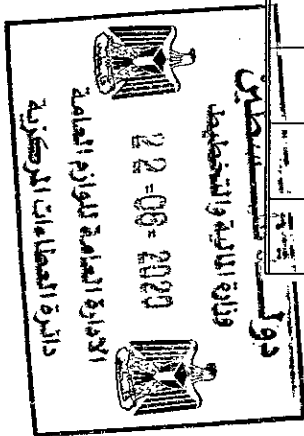 دولة فلسطين
وزارة المالية والتخطيط
22-08-2020
الإدارة العامة للوازم العامة
دائرة العطاءات المركزية